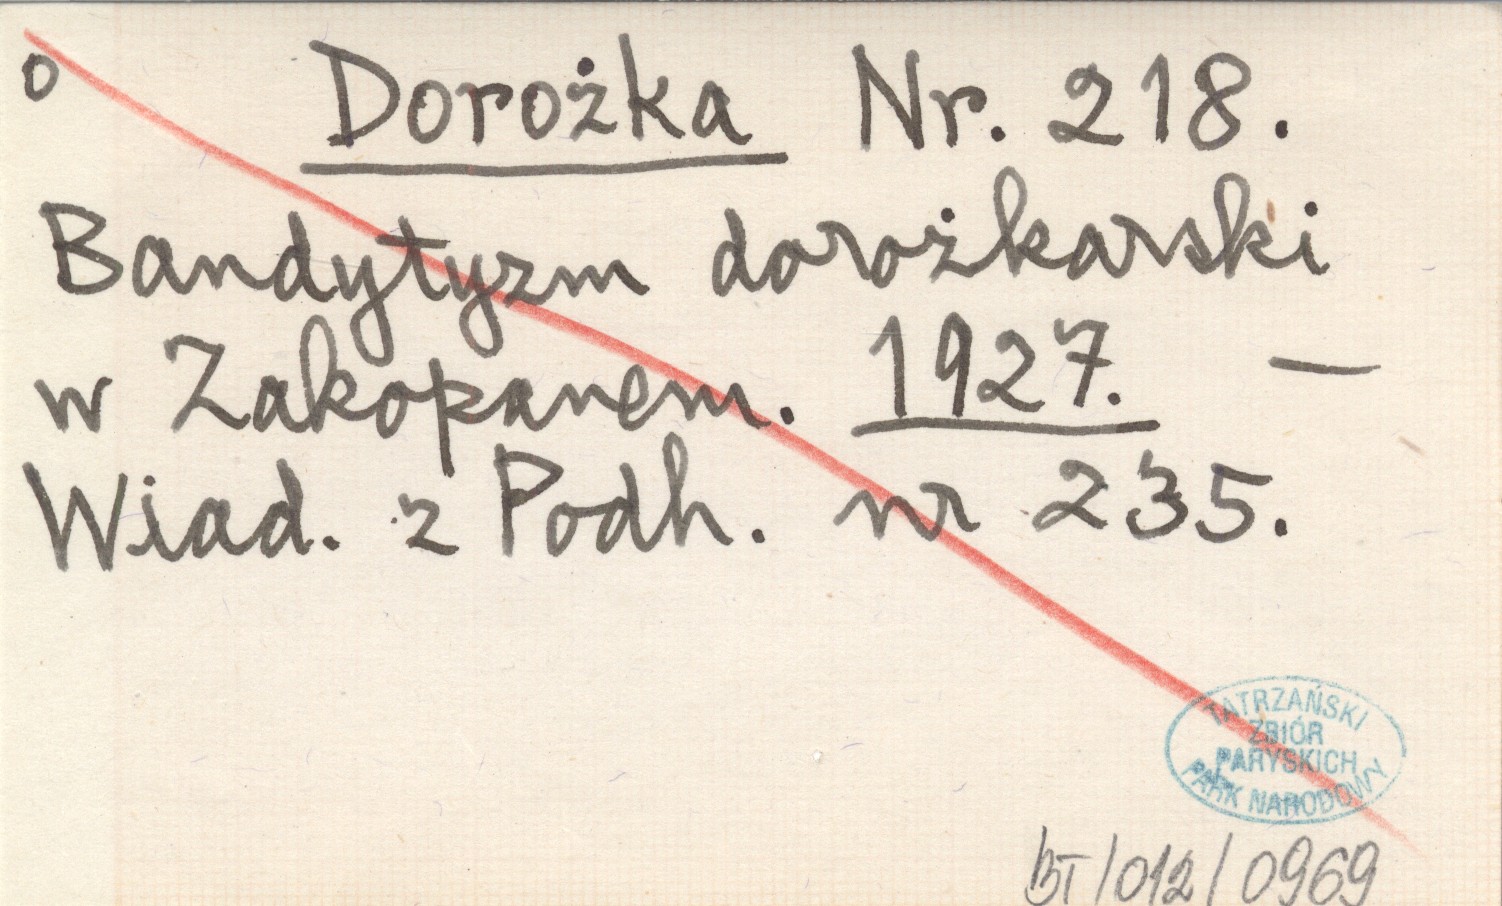 o Dorożka Nr. 218.
Bandytyzm dorożkarski
w Zakopanem. 1927. —
Wiad. z Podh. nr 235.
TATRZAŃSKI
ZBIÓR
PARYSKICH
PARK NARODOWY
BT/012/0969